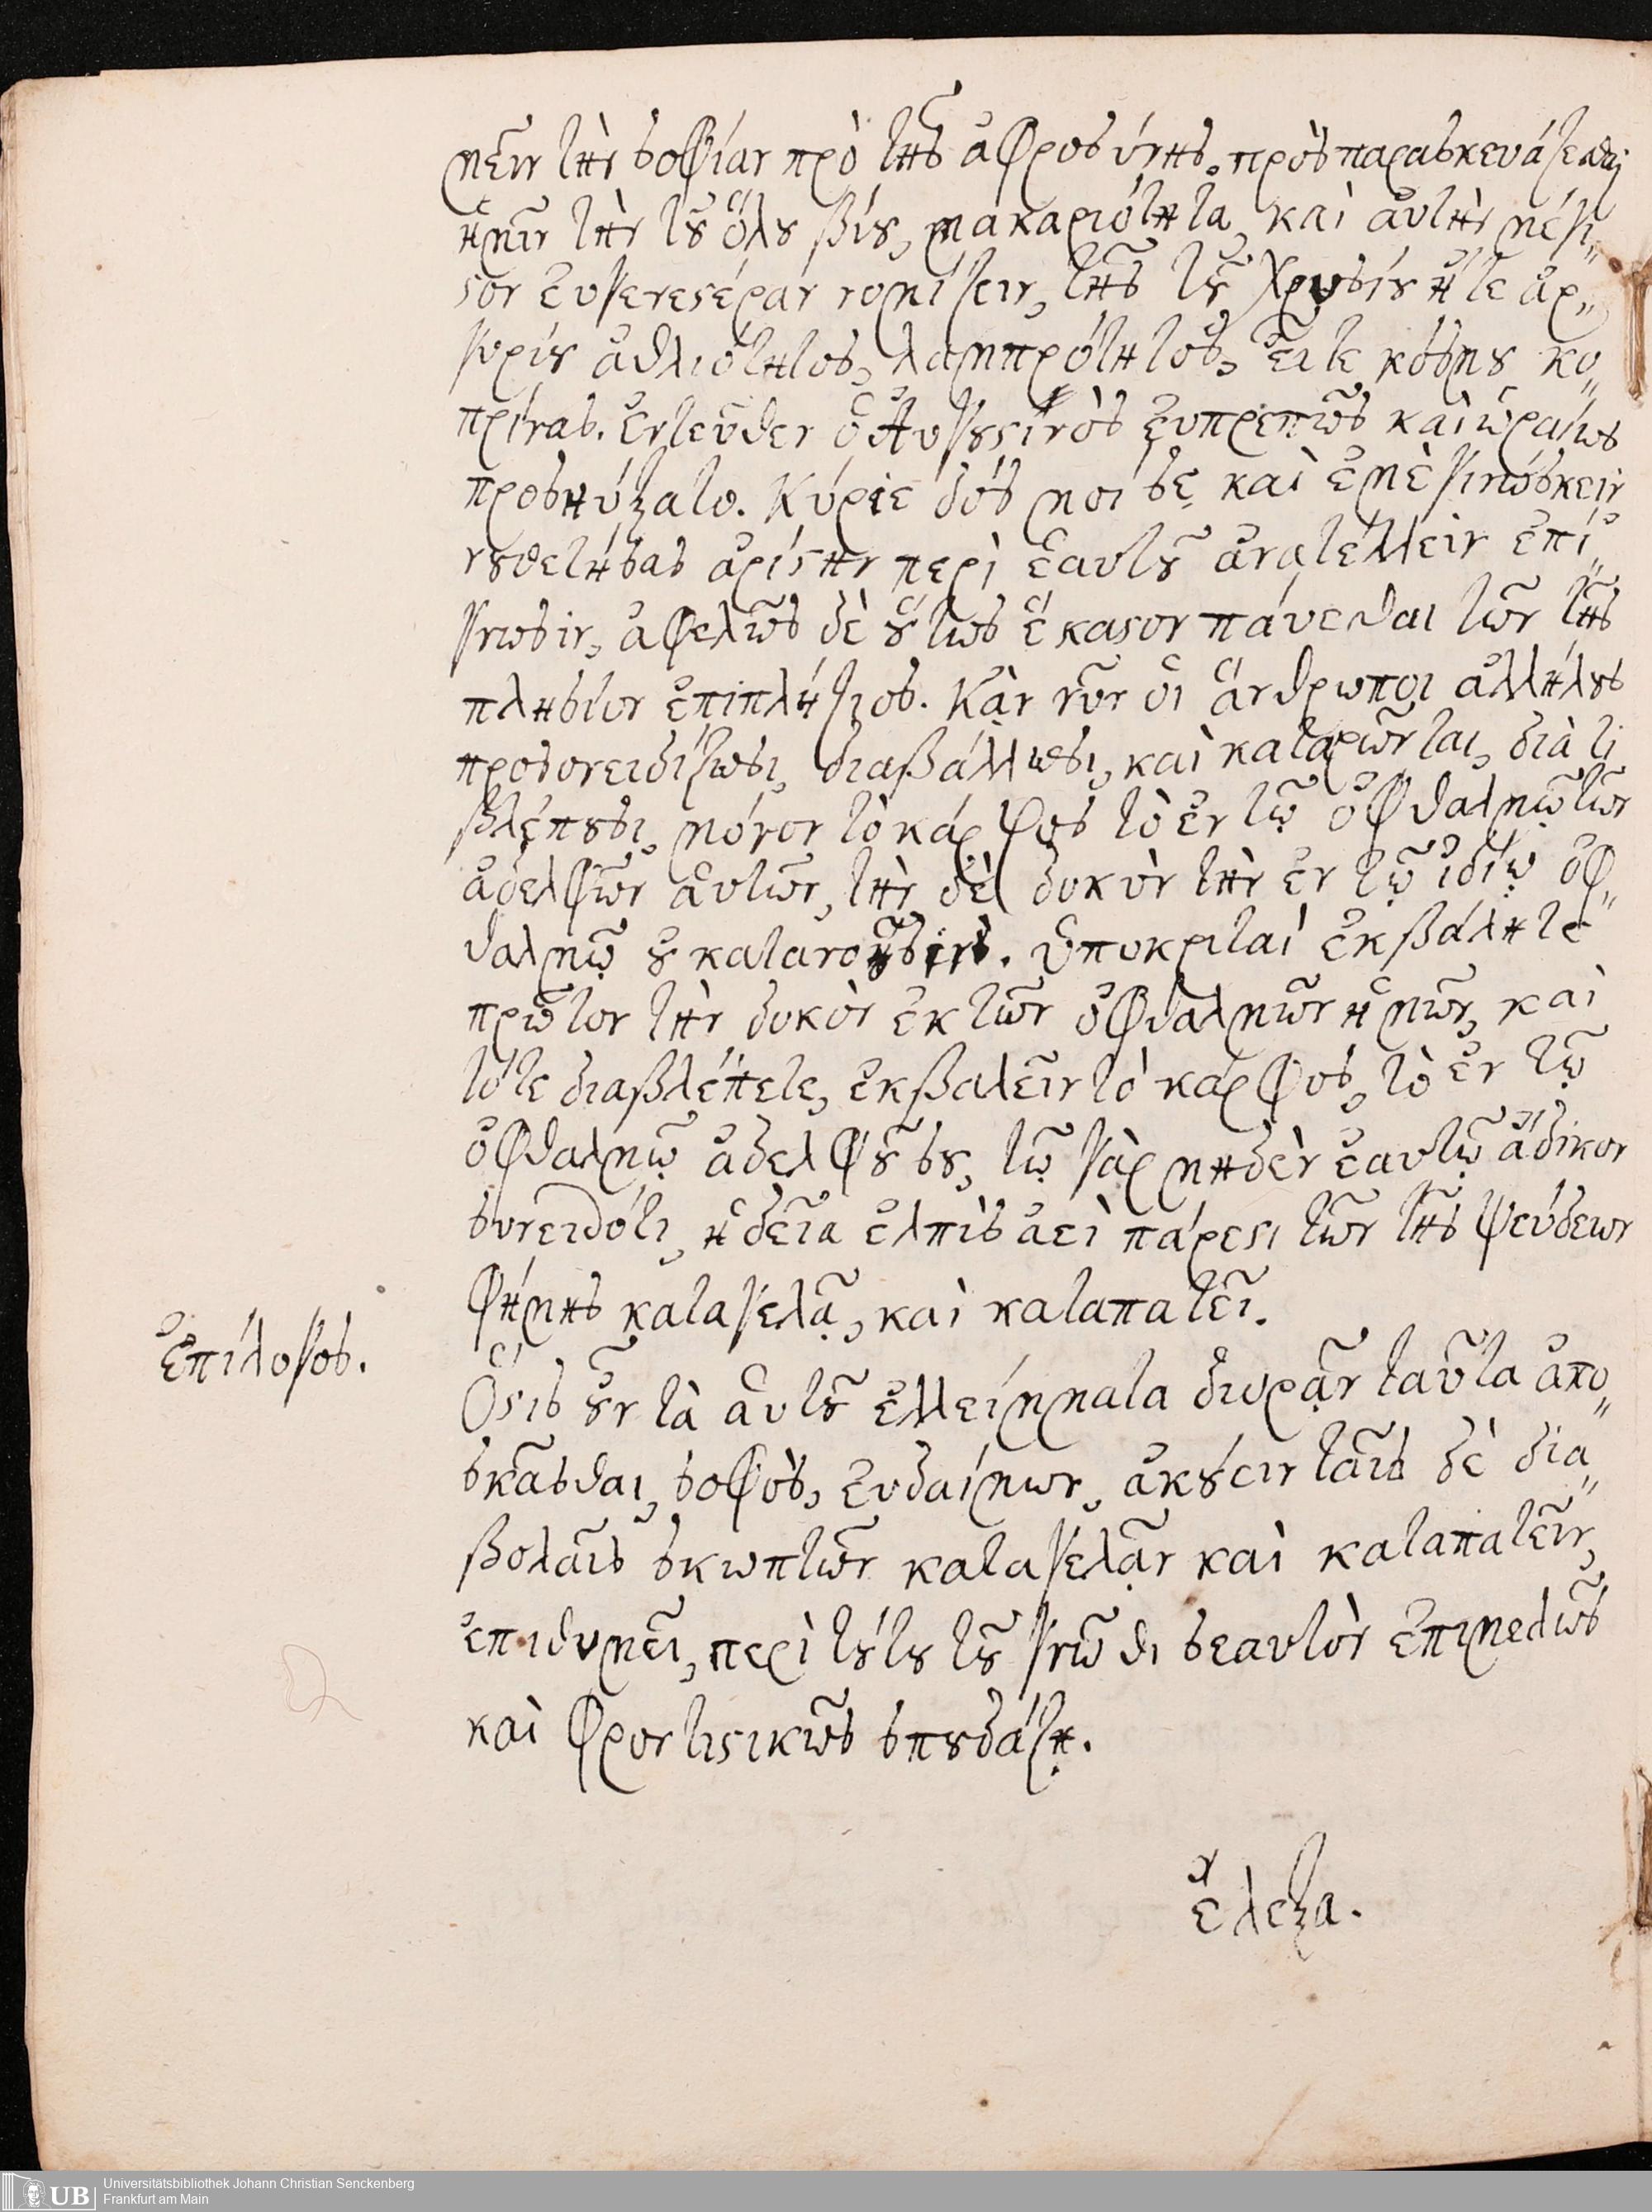 μεῖν τὴν σοφίαν πρὸ τῆς ἀφροσύνης. πρὸς παρασκευάζεσθαι
ἡμῖν τὴν τοῦ ὅλου βίου, μακαριότητα, καὶ ἀυτὴν μέγι„
στον ἐυγενεστέραν νομίζειν, τῆς τοῦ χρυσίου ἤτε ἀρ„
γυρίου ἀθλιότητος, λαμπρότητος, ἔιτε κόσμου κο„
πρίνας. ἐντεῦθεν ὁ Ἀυγουστίνὸς ἐυπρεπῶς καὶ ὡραίως
προσηύξατο. Κύριε δός μοι σε καὶ ἐμὲ γινώσκειν
νουθετήσας ἀρίστην περὶ ἑαυτοῦ ἀνατέλλειν ἐπί„
γνωσιν, ἀφελῶς δὲ ὅυτως ἕκαστον πάυεσθαι τῶν τῆς
πλησίον ἐπιπλήξιος. Κᾂν νῦν ὁι ἄνθρωποι ἀλλήλους
προσονειδίζωσι, διαβάλλωσι, καὶ καταρῶνται, διὰ τι
βλέπουσι, μόνον τὸ κάρφος τὸ ἐν τῷ ὀφθαλμῷ τῶν
ἀδελφῶν ἀυτῶν, τὴν δὲ δοκὸν τὴν ἐν τῷ ἰδίῳ ὀφ„
θαλμῷ οὐ κατανοῦσιν. ὑποκριταί ἐκβάλητε
πρῶτον τὴν δοκὸν ἐκ τῶν ὀφθαλμῶν ἡμῶν, καὶ
τότε διαβλέπετε, ἐκβαλεῖν τὸ κάρφος, τὸ ἐν τῷ
ὀφθαλμῷ ἀδελφοῦ σου, τῷ γὰρ μηδὲν ἑαυτῷ ἄδικον
συνειδότι, ἡδεῖα ἐλπὶς ἀεὶ πάρεστι τῶν τῆς ψεύδεων
φήμης καταγελᾷ, καὶ καταπατεῖ.
Ἐπίλογος.
Ὅστις οὖν τὰ ἀυτοῦ ἐλλείμματα διορᾷν ταῦτα ἀπο„
σκᾶσθαι, σοφὸς, ἐυδαίμων, ἀκούειν ταῖς δὲ δια„
βολαῖς σκωπτῶν καταγελᾷν καὶ καταπατεῖν,
ἐπιθυμεῖ, περὶ τούτου τοῦ γνῶθι σεαυτὸν ἐπιμελῶς
καὶ φροντιστικῶς σπουδάζῃ.
ἔλεξα.
Universitätsbibliothek Johann Christian Senckenberg
Frankfurt am Main
UB